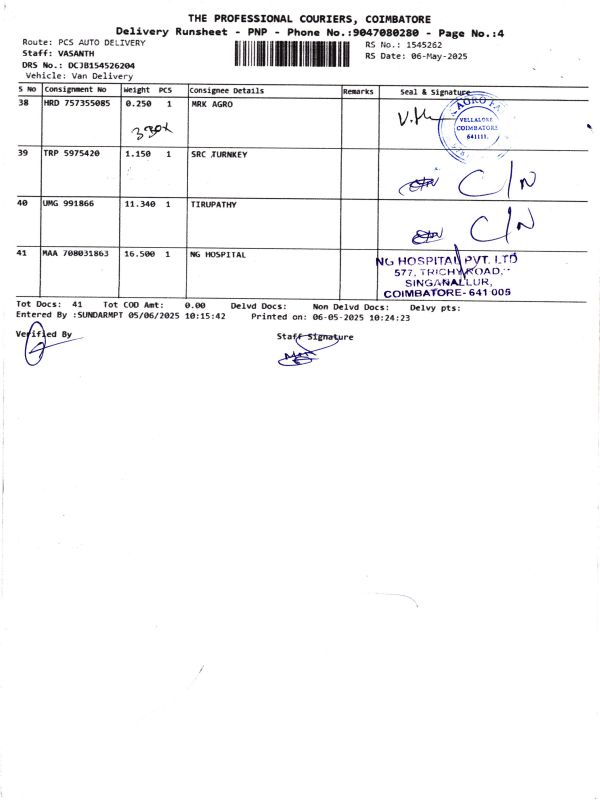 THE PROFESSIONAL COURIERS, COIMBATORE
Delivery Runsheet - PNP - Phone No.:9047080280 - Page No.:4
Route: PCS AUTO DELIVERY RS No.: 1545262
Staff: VASANTH RS Date: 06-May-2025
DRS No.: DCJB154526204
Vehicle: Van Delivery
S No Consignment No Weight PCS Consignee Details Remarks Seal & Signature
38 HRD 757355085 0.250 1 MRK AGRO
3 BOX
AGRO
VELLALORE
COIMBATORE
641111.
39 TRP 5975420 1.150 1 SRC TURNKEY
C/N
40 UMG 991866 11.340 1 TIRUPATHY
C/N
41 MAA 708031863 16.500 1 NG HOSPITAL
NG HOSPITAL PVT. LTD
577, TRICHY ROAD,
SINGANALLUR,
COIMBATORE- 641 005
Tot Docs: 41 Tot COD Amt: 0.00 Delvd Docs: Non Delvd Docs: Delvy pts:
Entered By :SUNDARMPT 05/06/2025 10:15:42 Printed on: 06-05-2025 10:24:23
Verified By Staff Signature